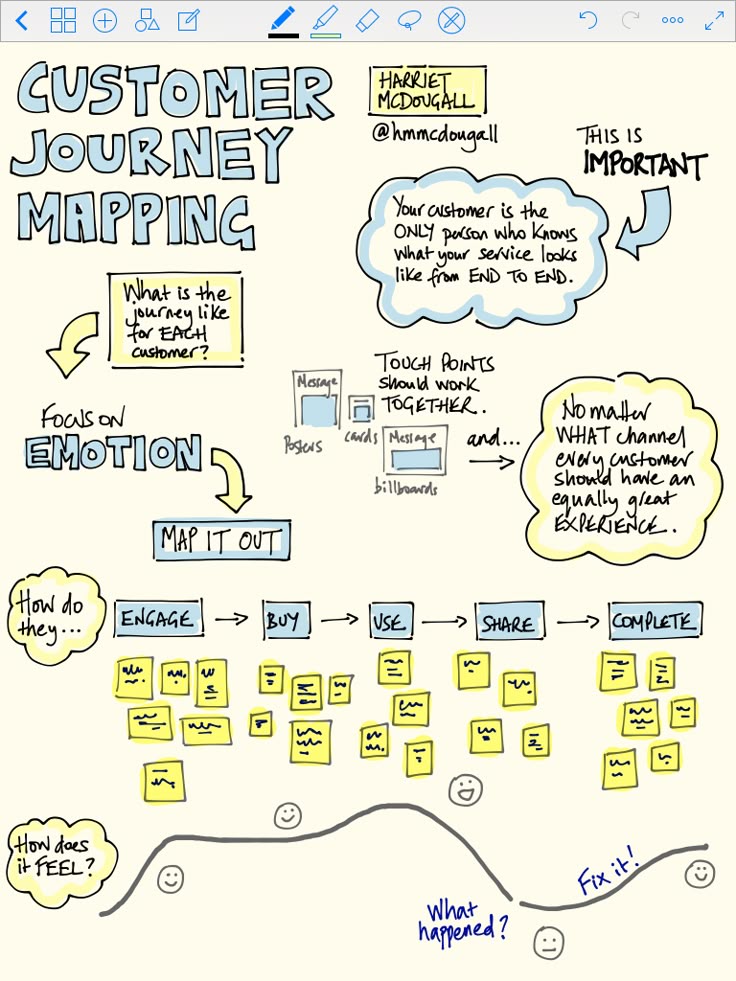 CUSTOMER
JOURNEY
MAPPING
HARRIET
MCDOUGALL
@hmmcdougall
THIS IS
IMPORTANT
Your customer is the
ONLY person who knows
what your service looks
like from END TO END.
What is the
journey like
for EACH
customer?
FOCUS ON
EMOTION
MAP IT OUT
TOUCH POINTS
should work
TOGETHER.
Message
Posters
cards
Message
billboards
and...
No matter
WHAT channel
every customer
should have an
equally great
EXPERIENCE.
How do
they...
ENGAGE
BUY
USE
SHARE
COMPLETE
How does
it FEEL?
What
happened?
Fix it!